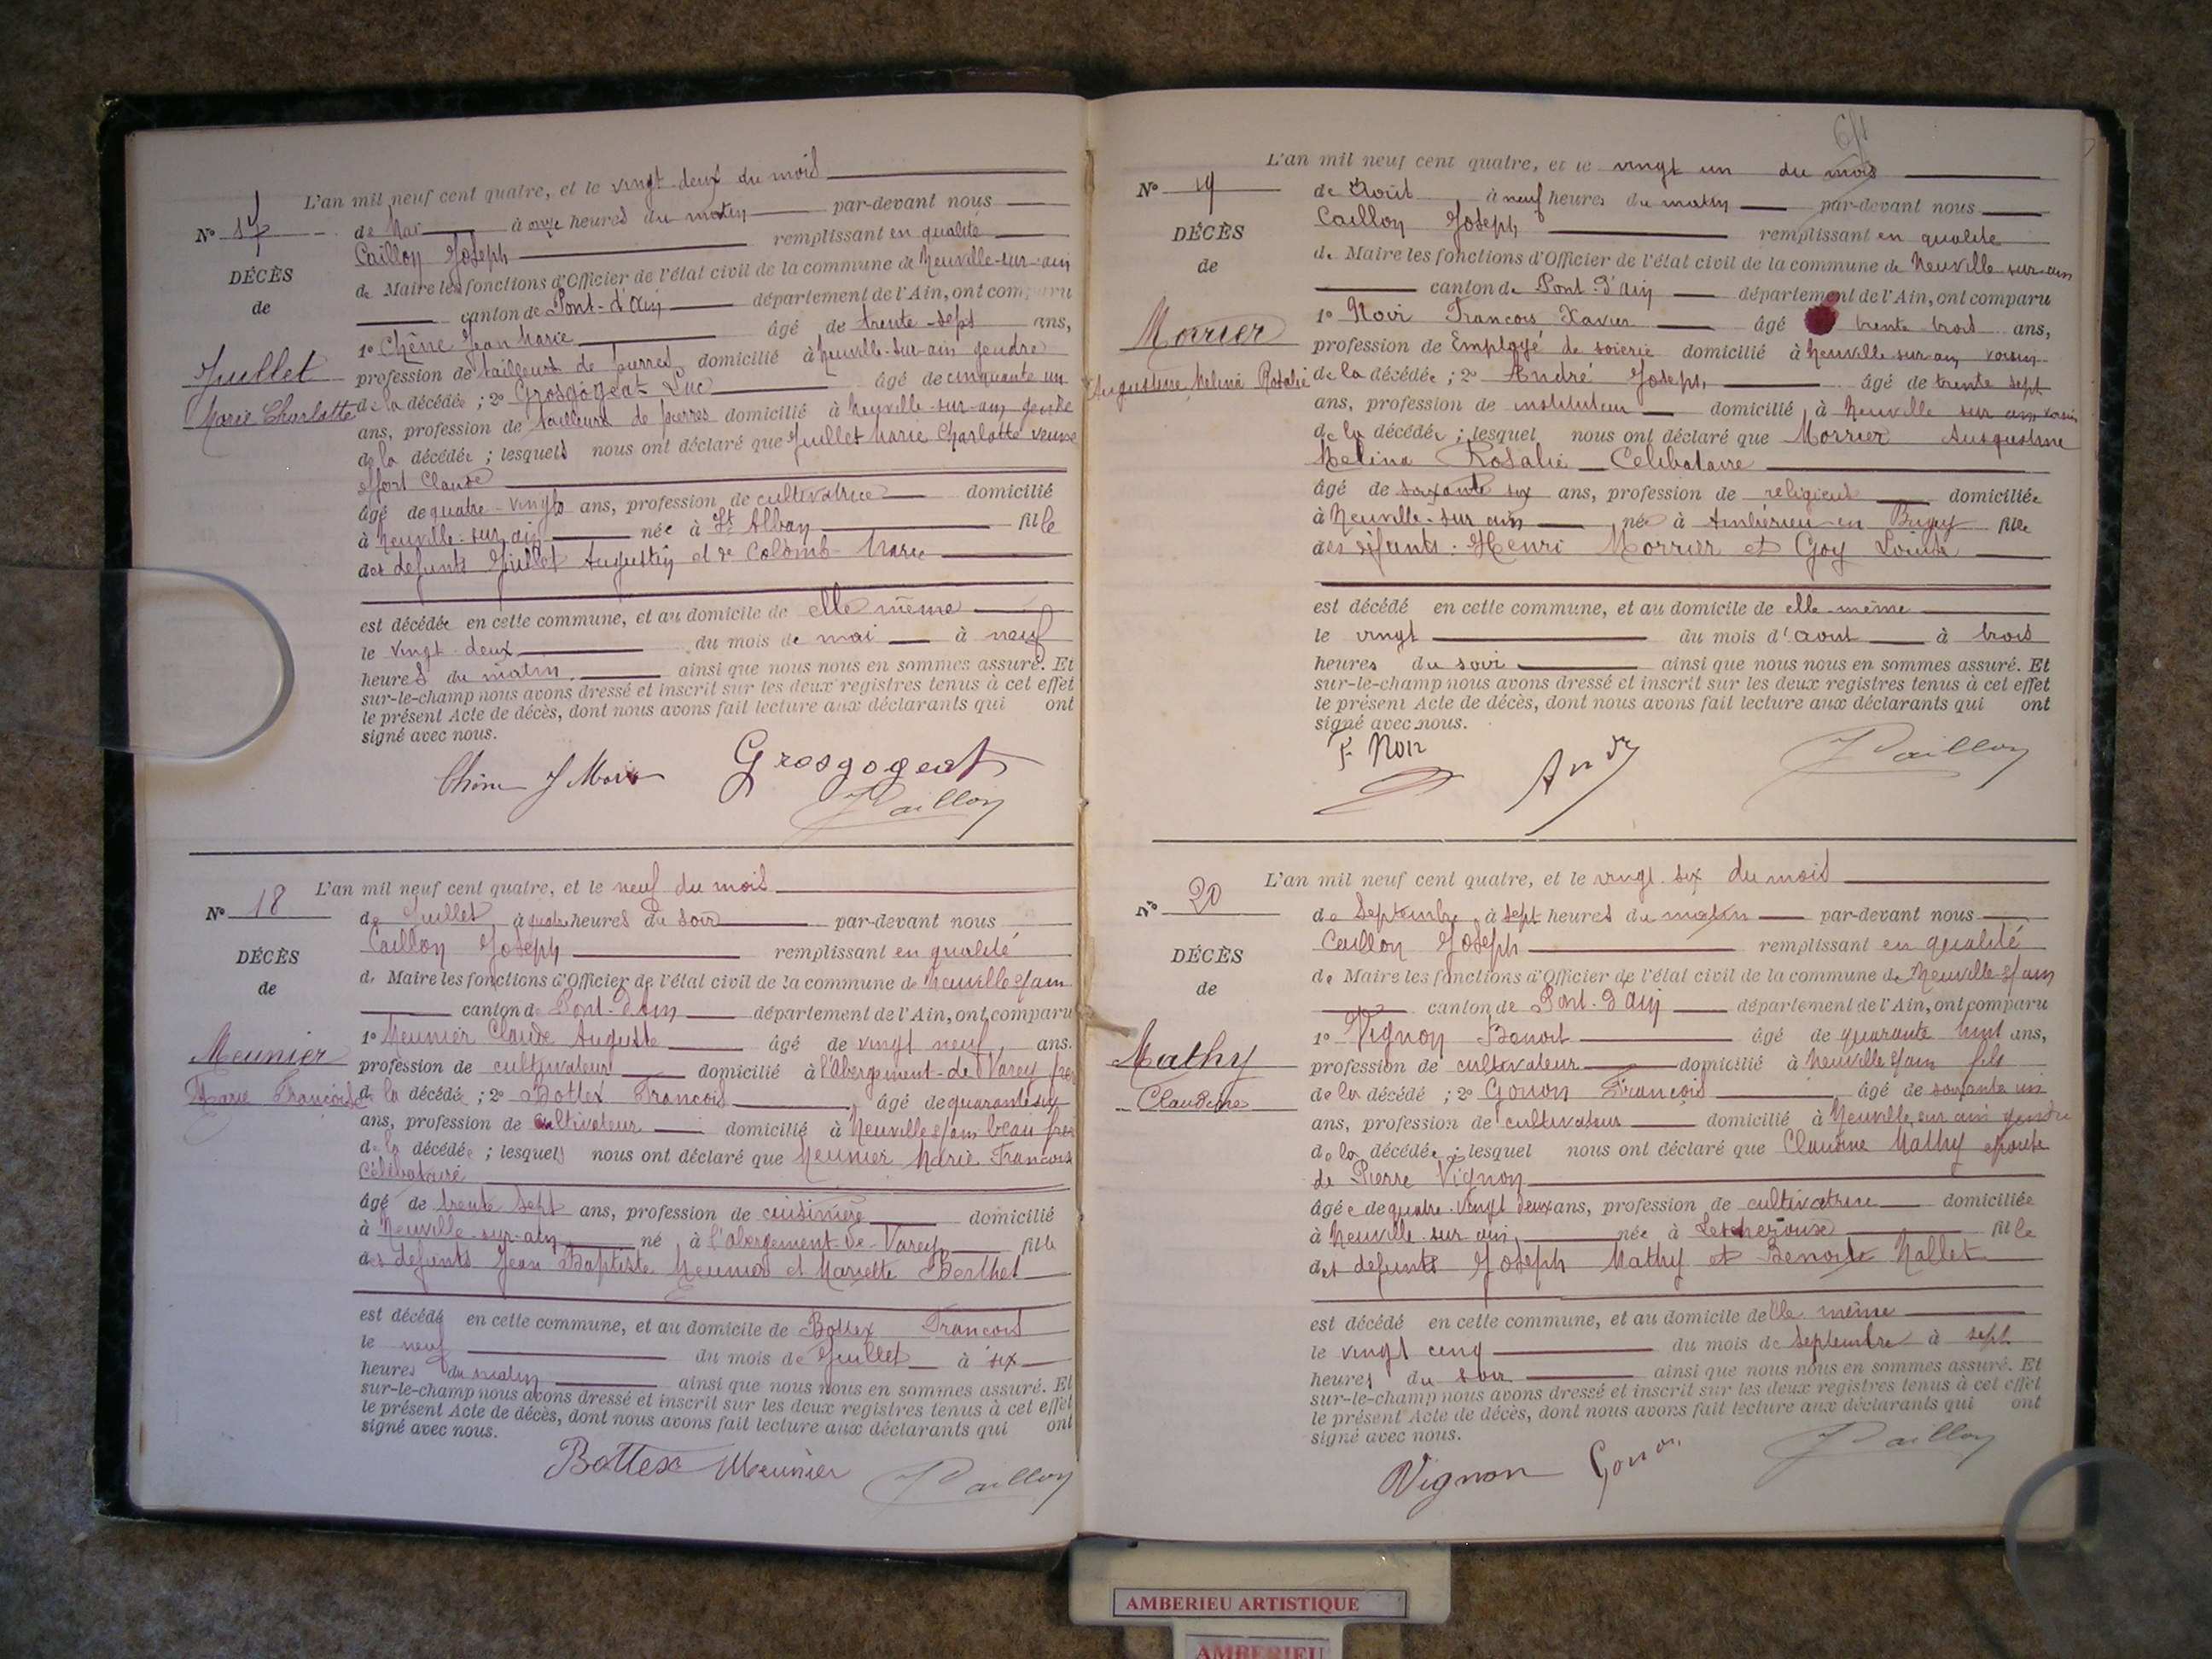 L'an mil neuf cent quatre, et le vingt deux du mois
N° 17
de Mai à onze heures du matin par-devant nous
Caillon Joseph remplissant en qualité
DÉCÈS
de Maire les fonctions d'Officier de l'état civil de la commune de Neuville-sur-ain
de
canton de Pont-d'Ain département de l'Ain, ont comparu
1° Chêne Jean Marie âgé de trente-sept ans,
Juillet
profession de tailleurs de pierres domicilié à Neuville-sur-ain gendre
Marie Charlotte
de la décédée ; 2° Grosgogeat Luc âgé de cinquante un
ans, profession de tailleurs de pierres domicilié à Neuville-sur-ain gendre
de la décédée ; lesquels nous ont déclaré que Juillet Marie Charlotte veuve
Claude
âgé de quatre-vingts ans, profession de cultivatrice domicilié
à Neuville-sur-ain née à St Alban fille
des defunts Juillet Augustin et de Colomb Marie
est décédée en cette commune, et au domicile de elle même
le vingt deux du mois de mai à neuf
heures du matin ainsi que nous nous en sommes assuré. Et
sur-le-champ nous avons dressé et inscrit sur les deux registres tenus à cet effet
le présent Acte de décès, dont nous avons fait lecture aux déclarants qui ont
signé avec nous.
Chêne J Marie Grosgogeat
J Caillon
L'an mil neuf cent quatre, et le neuf du mois
N° 18
de Juillet à quatre heures du soir par-devant nous
Caillon Joseph remplissant en qualité
DÉCÈS
de Maire les fonctions d'Officier de l'état civil de la commune de Neuville s/ain
de
canton de Pont-d'ain département de l'Ain, ont comparu
1° Meunier Claude Auguste âgé de vingt neuf ans.
Meunier
profession de cultivateur domicilié à l'Abergement-de-Varey frère
Marie Françoise
de la décédée ; 2° Bottex Francois âgé de quarante six
ans, profession de cultivateur domicilié à Neuville s/ain beau frère
de la décédée ; lesquels nous ont déclaré que Meunier Marie Francoise
Célibataire
âgé de trente sept ans, profession de cuisinière domicilié
à Neuville-sur-ain né à l'abergement-de-Varey fille
des defunts Jean Baptiste Meunier et Mariette Berthet
est décédé en cette commune, et au domicile de Bottex Francois
le neuf du mois de Juillet à six
heures du matin ainsi que nous nous en sommes assuré. Et
sur-le-champ nous avons dressé et inscrit sur les deux registres tenus à cet effet
le présent Acte de décès, dont nous avons fait lecture aux déclarants qui ont
signé avec nous.
Bottex Meunier J Caillon
L'an mil neuf cent quatre, et le vingt un du mois
N° 19
de Août à neuf heures du matin par-devant nous
Caillon Joseph remplissant en qualité
DÉCÈS
de Maire les fonctions d'Officier de l'état civil de la commune de Neuville sur-ain
de
canton de Pont-d'Ain département de l'Ain, ont comparu
1° Noir Francois Xavier âgé trente trois ans,
Morrier
profession de Employé de soierie domicilié à Neuville sur ain voisin
Augustine Melina Rosalie
de la décédée ; 2° André Joseph âgé de trente sept
ans, profession de instituteur domicilié à Neuville sur ain voisin
de la décédée ; lesquel nous ont déclaré que Morrier Augustine
Melina Rosalie Celibataire
âgé de soixante six ans, profession de religieuse domiciliée
à Neuville-sur ain née à Ambérieu-en Bugey fille
des défunts : Henri Morrier et Goy Louise
est décédé en cette commune, et au domicile de elle-même
le vingt du mois d'aout à trois
heures du soir ainsi que nous nous en sommes assuré. Et
sur-le-champ nous avons dressé et inscrit sur les deux registres tenus à cet effet
le présent Acte de décès, dont nous avons fait lecture aux déclarants qui ont
signé avec nous.
F. Noir André J Caillon
L'an mil neuf cent quatre, et le vingt six du mois
N° 20
de Septembre à sept heures du matin par-devant nous
Caillon Joseph remplissant en qualité
DÉCÈS
de Maire les fonctions d'Officier de l'état civil de la commune de Neuville s/ain
de
canton de Pont-d'Ain département de l'Ain, ont comparu
1° Vignon Benoit âgé de quarante huit ans,
Mathy
profession de cultivateur domicilié à Neuville s/ain fils
Claudine
de la décédé ; 2° Gonon François âgé de soixante un
ans, profession de cultivateur domicilié à Neuville sur ain gendre
de la décédée ; lesquel nous ont déclaré que Claudine Mathy epouse
de Pierre Vignon
âgée de quatre-vingt deux ans, profession de cultivatrice domiciliée
à Neuville sur ain née à Lescheroux fille
des defunts Joseph Mathy et Benoite Mallet
est décédé en cette commune, et au domicile de lle même
le vingt cinq du mois de septembre à sept
heures du soir ainsi que nous nous en sommes assuré. Et
sur-le-champ nous avons dressé et inscrit sur les deux registres tenus à cet effet
le présent Acte de décès, dont nous avons fait lecture aux déclarants qui ont
signé avec nous.
Vignon Gonon J Caillon
AMBERIEU ARTISTIQUE
AMBERIEU